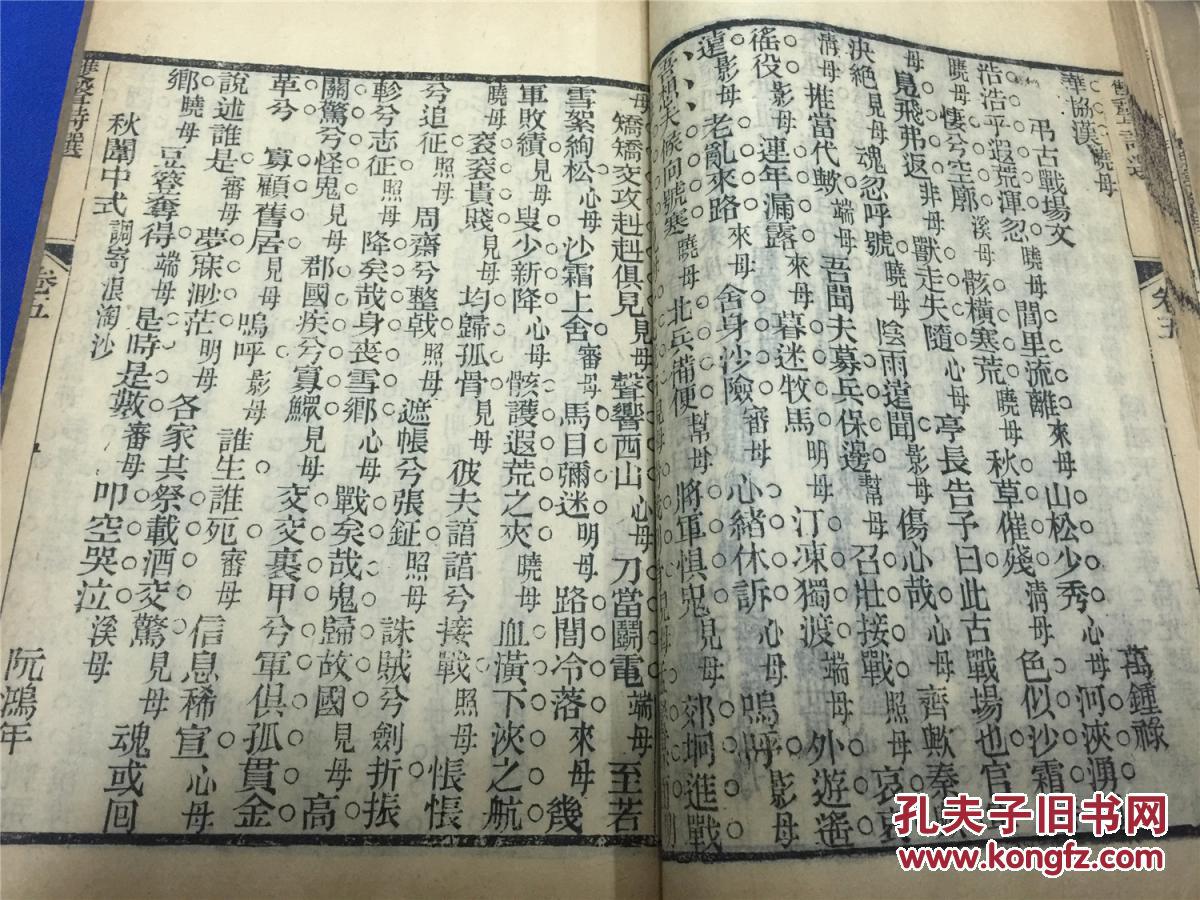 華協漢曉母
弔古戰場文 萬鍾祿
浩浩乎遐荒渾忍曉母 閭里流離來母山松少秀心母河浹湧
曉母悽兮空廓溪母骸橫寒荒曉母秋草催殘清母色似沙霜
母鳧飛弗返非母獸走失隨心母亭長告予曰此古戰場也官
決絕見母魂忍呼號曉母陰雨遠聞影母傷心哉心母齊歟秦
清母推當代歟端母吾聞夫募兵保邊幫母召壯接戰照母哀
徭役影母連年漏露來母暮迷牧馬明母汀凍獨渡端母外遊遙
遠影母老亂來路來母舍身沙險審母心緒休訴心母嗚呼影母
吾想夫候向號寒曉母北兵備便幫母將軍懼鬼見母郊坰進戰
母矯矯交攻赳赳俱見見母聲響西山心母刀當鬬電端母至若
雪絮絢松心母沙霜上舍審母馬目彌迷明母路間冷落來母幾
軍敗績見母叟少新降心母骸護遐荒之夾曉母血潢下浹之航
曉母袞袞貴賤見母均歸孤骨見母彼夫諳諳兮接戰照母悵悵
兮追征照母周齋兮整戟照母遮帳兮張鉦照母誅賊兮劍折振
軫兮志征照母降矣哉身喪雪鄉心母戰矣哉鬼歸故國見母高
關驚兮怪鬼見母郡國疾兮寡鰥見母交交裹甲兮軍俱孤貫金
革兮寡顧舊居見母嗚呼影母誰生誰死審母信息稀宣心母
說述誰是審母夢寐渺茫明母各家共祭載酒交驚見母魂或回
鄉曉母豆簦奪得端母是時是數審母叩空哭泣溪母
秋闈中式調寄浪淘沙 阮鴻年
卷五
卷五
孔夫子旧书网
www.kongfz.com